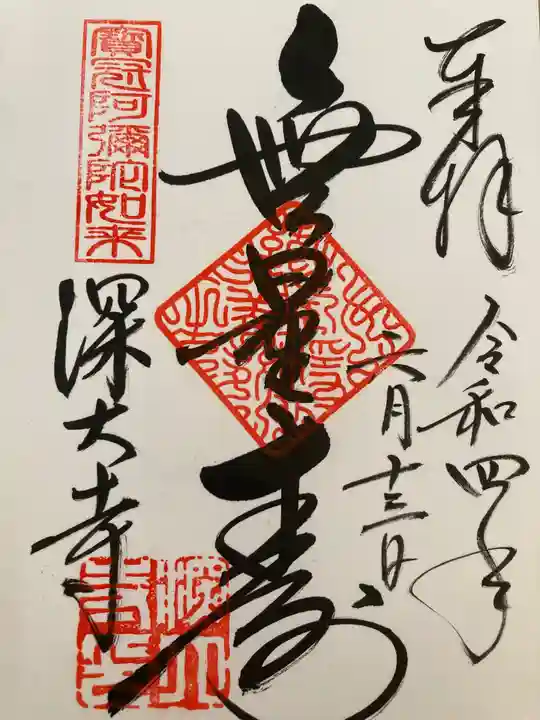 奉拝
令和四年
六月十三日
無量壽
寶冠阿彌陀如来
深大寺